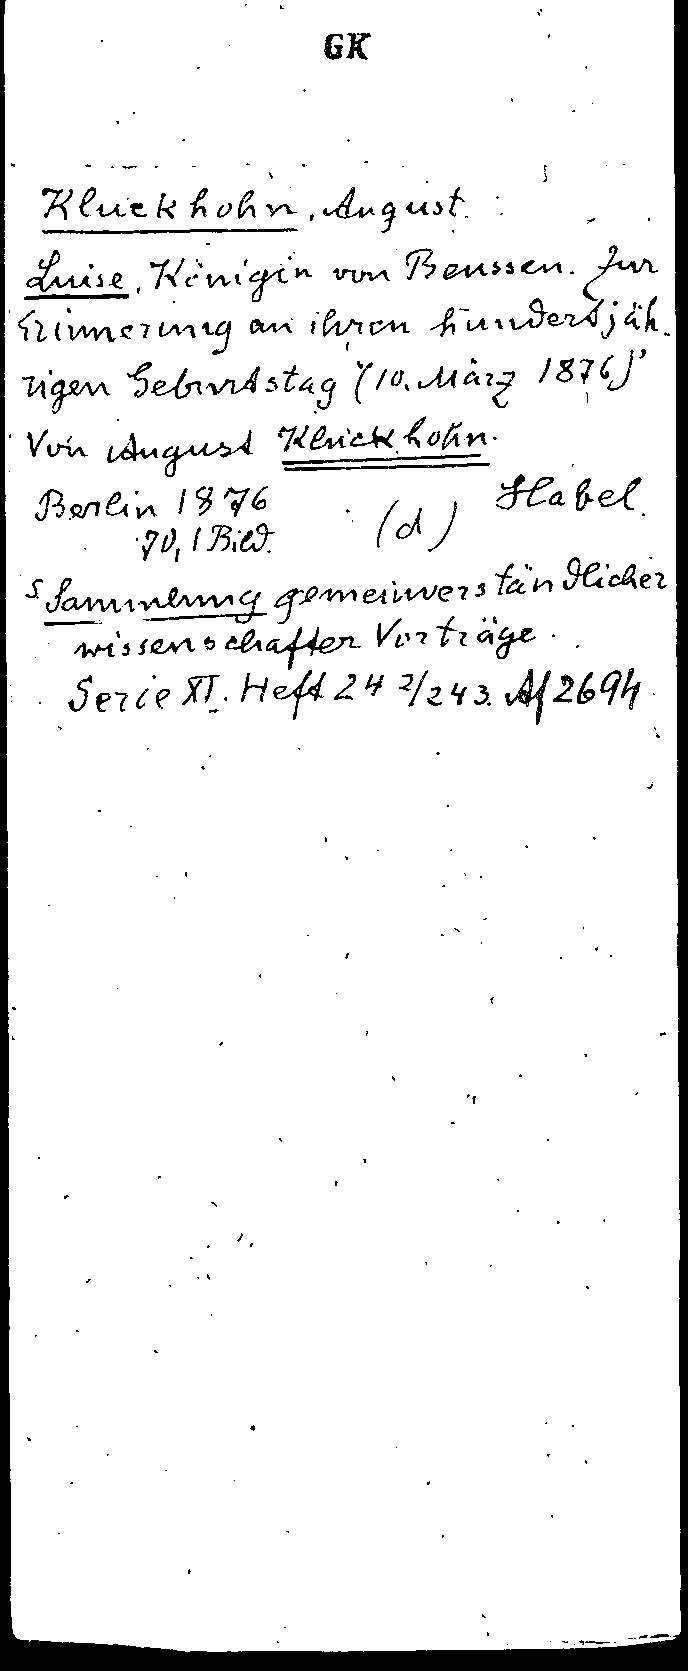 GK
Kluckhohn, August.
Luise, Königin von Beussen. Zur
Erinnerung an ihren hundertjäh-
rigen Geburtstag (10. März 1876)
Von August Kluckhohn.
Berlin 1876 (d) Habel.
70, 1 Bild.
S Sammlung gemeinverständlicher
wissenschafter Vorträge.
Serie XI. Heft 242/243. Af 2694